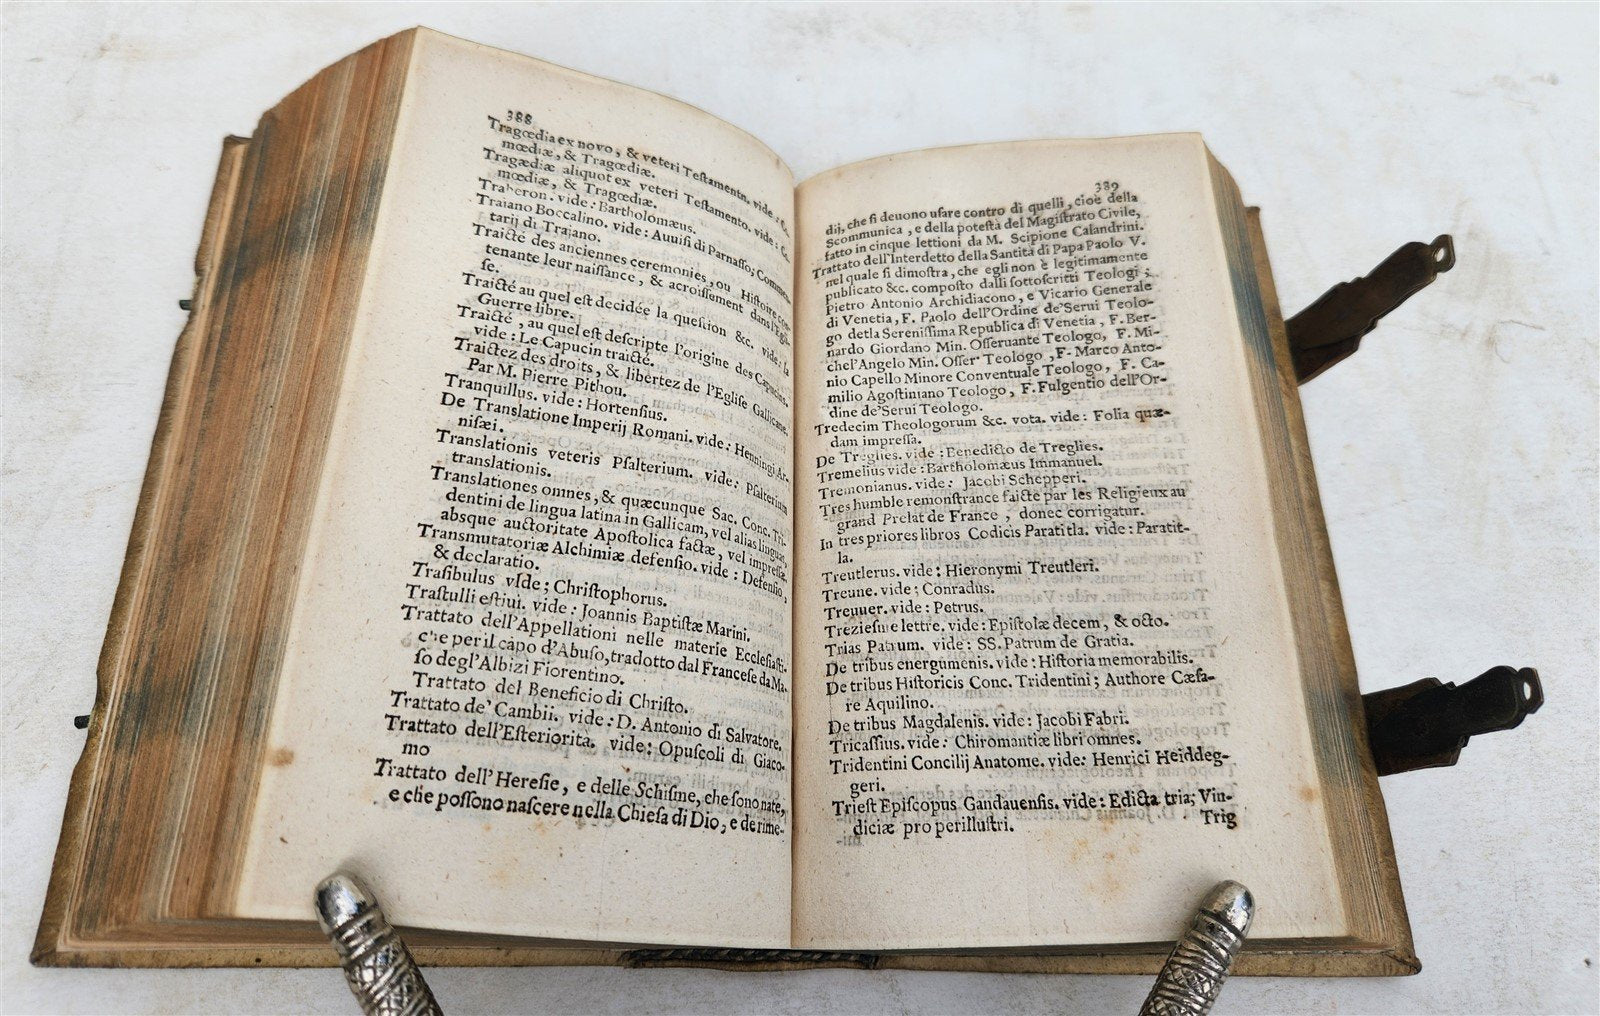 388
Tragœdia ex novo, & veteri Teſtamentn. vide: Co-
mœdiæ, & Tragœdiæ.
Tragædiæ aliquot ex veteri Teſtamento. vide: Co-
mœdiæ, & Tragœdiæ.
Traberon. vide: Bartholomæus.
Traiano Boccalino. vide: Auuiſi di Parnaſſo; Commen-
tarij di Trajano.
Traicté des anciennes ceremonies, ou Hiſtoire con-
tenante leur naiſſance, & acroiſſement dans l'Egli-
ſe.
Traicté au quel eſt decidée la queſtion &c. vide: la
Guerre libre.
Traicté, au quel eſt deſcripte l'origine des Capucins.
vide: Le Capucin traicté.
Traictez des droits, & libertez de l'Egliſe Gallicane.
Par M. Pierre Pithou.
Tranquillus. vide: Hortenſius.
De Translatione Imperij Romani. vide: Henningi Ar-
niſæi.
Translationis veteris Pſalterium. vide: Pſalterium
translationis.
Translationes omnes, & quæcunque Sac. Conc. Tri-
dentini de lingua latina in Gallicam, vel alias linguas,
absque auctoritate Apoſtolica factæ, vel impreſſæ.
Transmutatoriæ Alchimiæ defenſio. vide: Defenſio,
& declaratio.
Traſibulus vſde; Chriſtophorus.
Traſtulli eſtiui. vide: Joannis Baptiſtæ Marini.
Trattato dell'Appellationi nelle materie Eccleſiaſti-
che per il capo d'Abuſo, tradotto dal Franceſe da Ma-
ſo degl'Albizi Fiorentino.
Trattato del Beneficio di Chriſto.
Trattato de' Cambii. vide: D. Antonio di Salvatore.
Trattato dell'Eſteriorita. vide: Opuſcoli di Giaco-
mo
Trattato dell' Hereſie, e delle Schiſme, che ſono nate,
e che poſſono naſcere nella Chieſa di Dio, e de rime-
389
dii, che ſi deuono uſare contro di quelli, cioè della
Scommunica, e della poteſtà del Magiſtrato Civile,
fatto in cinque lettioni da M. Scipione Calandrini.
Trattato dell'Interdetto della Santità di Papa Paolo V.
nel quale ſi dimoſtra, che egli non è legitimamente
publicato &c. compoſto dalli ſottoſcritti Teologi;
Pietro Antonio Archidiacono, e Vicario Generale
di Venetia, F. Paolo dell'Ordine de'Serui Teolo-
go detla Sereniſſima Republica di Venetia, F. Ber-
nardo Giordano Min. Oſſeruante Teologo, F. Mi-
chel'Angelo Min. Oſſer. Teologo, F. Marco Anto-
nio Capello Minore Conventuale Teologo, F. Ca-
milio Agoſtiniano Teologo, F. Fulgentio dell'Or-
dine de'Serui Teologo.
Tredecim Theologorum &c. vota. vide: Folia quæ-
dam impreſſa.
De Treglies. vide: Benedicto de Treglies.
Tremelius vide: Bartholomæus Immanuel.
Tremonianus. vide: Jacobi Schepperi.
Tres humble remonſtrance faicte par les Religieux au
grand Prelat de France, donec corrigatur.
In tres priores libros Codicis Paratitla. vide: Paratit-
la.
Treutlerus. vide: Hieronymi Treutleri.
Treune. vide: Conradus.
Treuuer. vide: Petrus.
Trezieſme lettre. vide: Epiſtolæ decem, & octo.
Trias Patrum. vide: SS. Patrum de Gratia.
De tribus energumenis. vide: Hiſtoria memorabilis.
De tribus Hiſtoricis Conc. Tridentini; Authore Cæſa-
re Aquilino.
De tribus Magdalenis. vide: Jacobi Fabri.
Tricaſſius. vide: Chiromantiæ libri omnes.
Tridentini Concilij Anatome. vide: Henrici Heiddeg-
geri.
Trieſt Epiſcopus Gandauenſis. vide: Edicta tria; Vin-
diciæ pro perilluſtri.
Trig